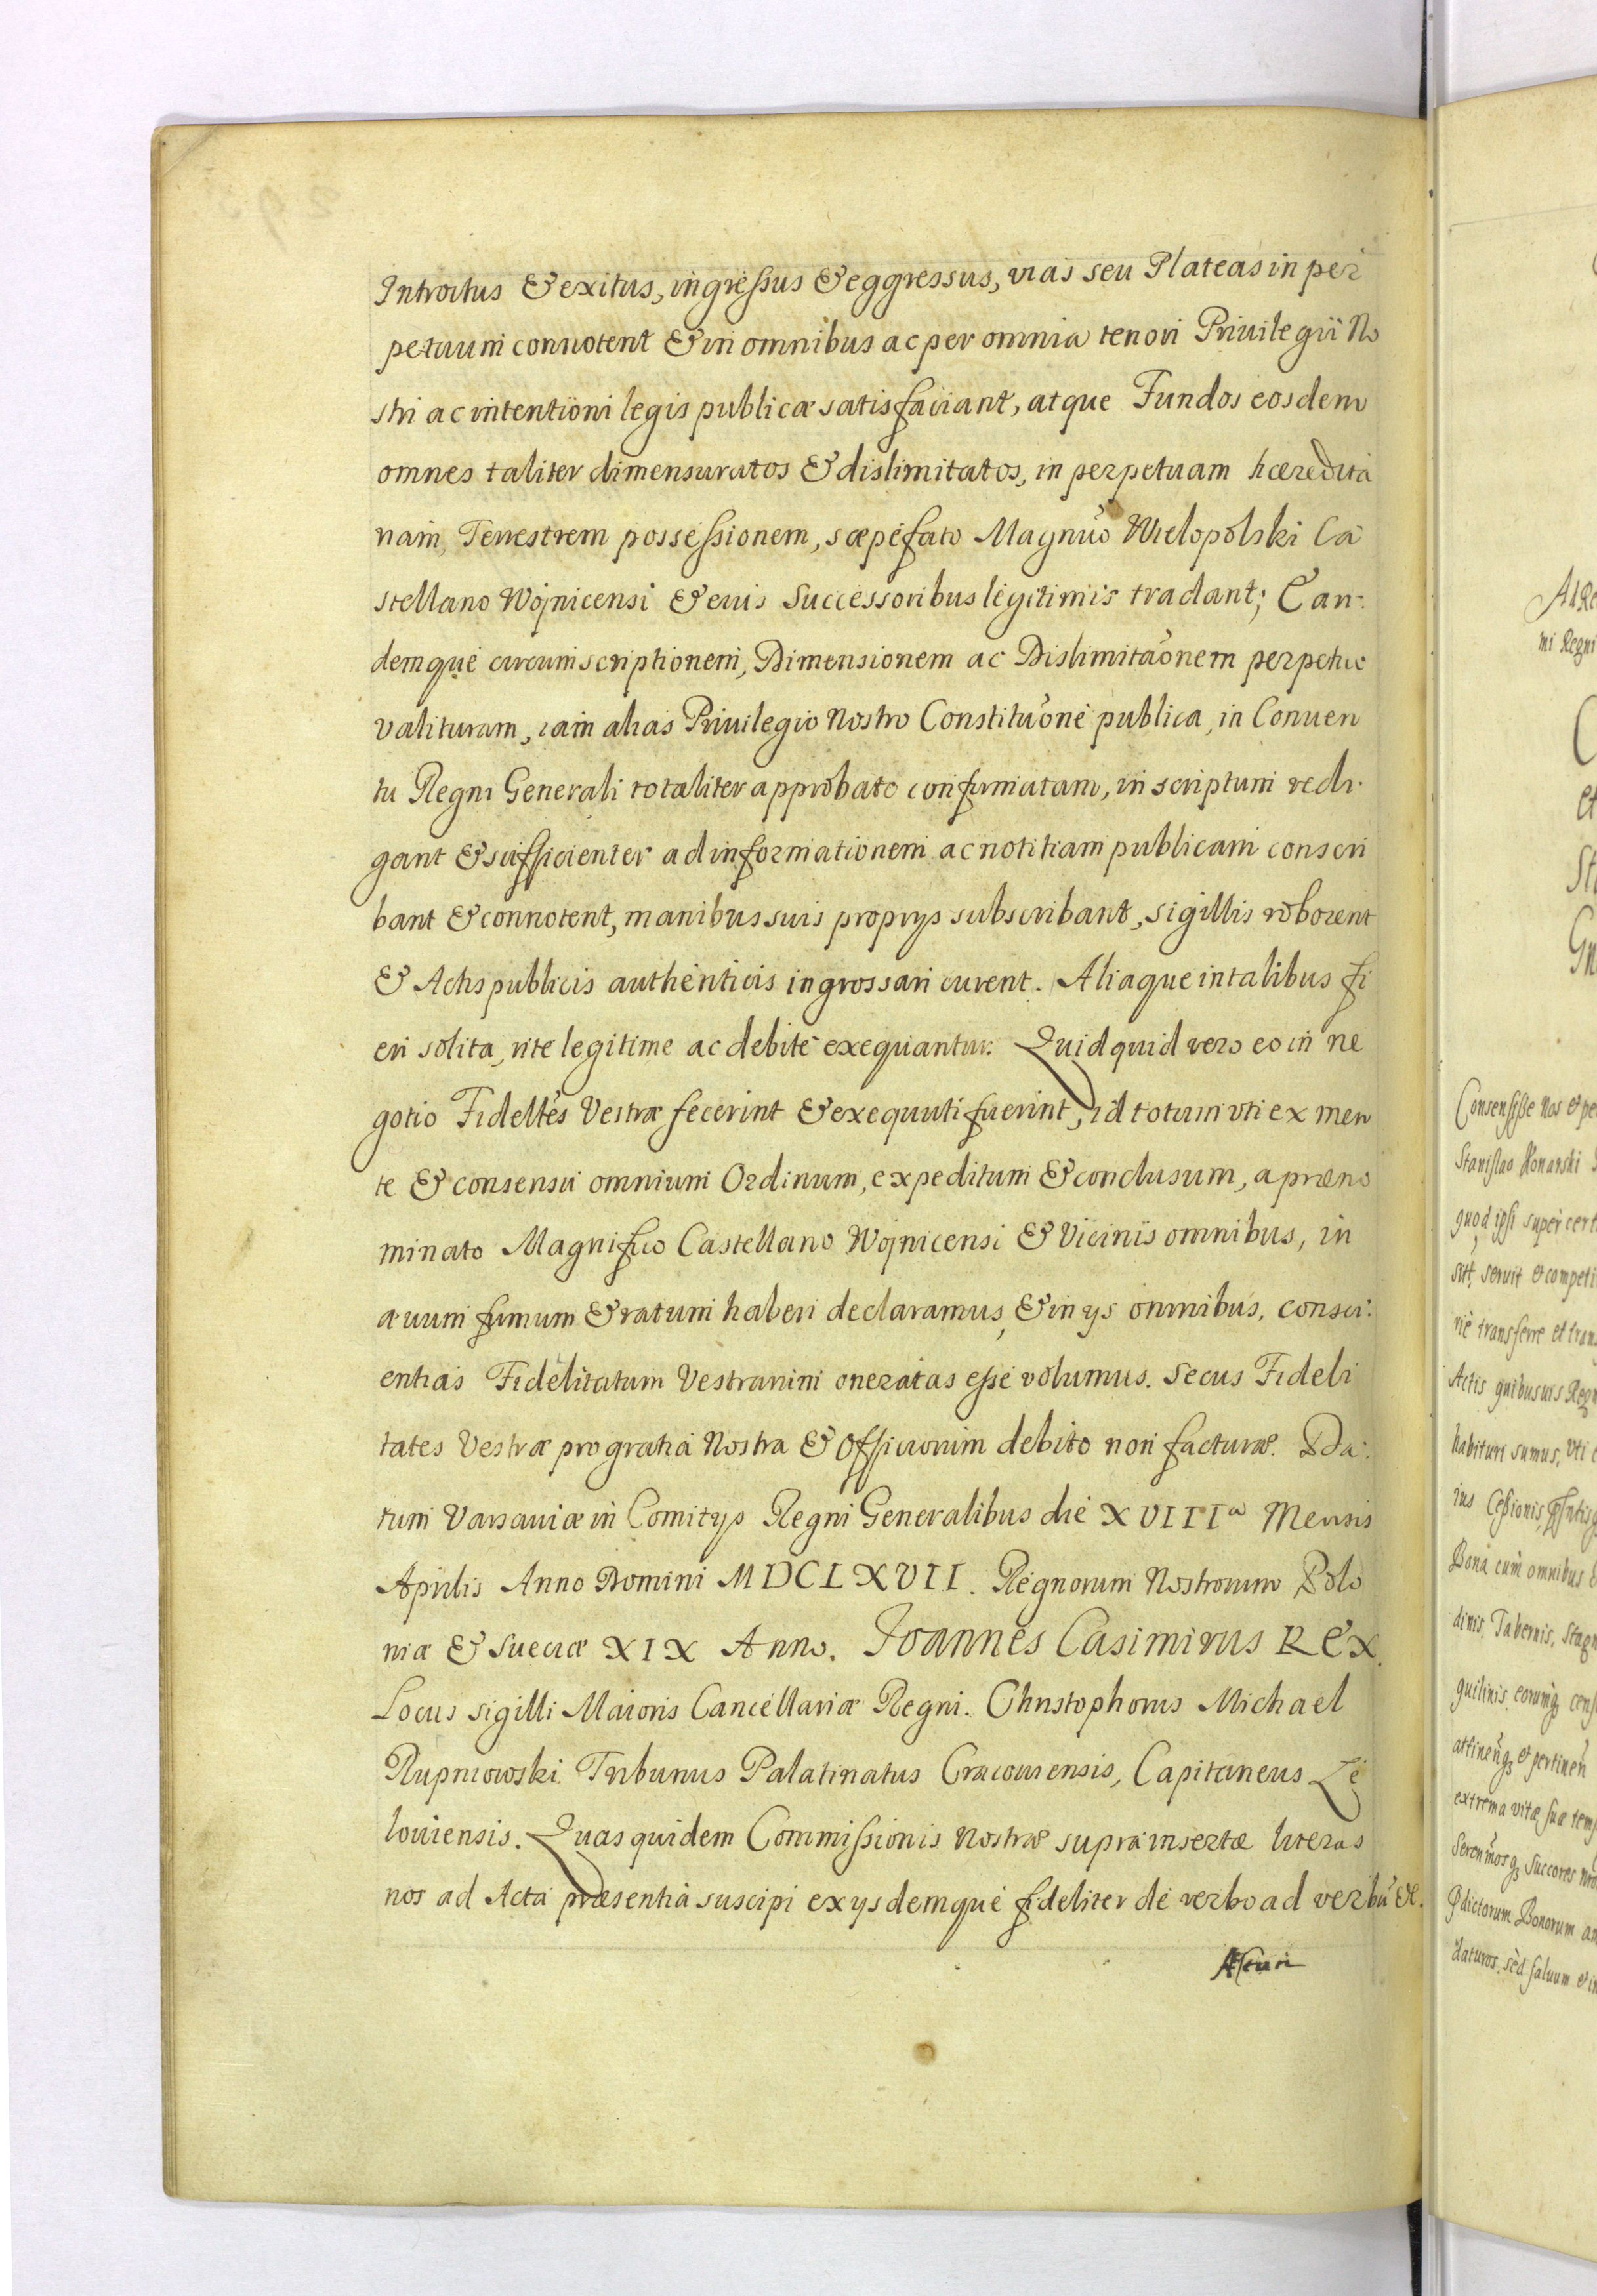 Introitus & exitus, ingressus & eggressus, uias seu Plateas in per
petuum connotent & in omnibus ac per omnia tenori Priuilegii No
stri ac intentioni legis publicæ satisfaciant, atque Fundos eosdem
omnes taliter dimensuratos & dislimitatos, in perpetuam hæredita
riam, Terrestrem possessionem, sæpefato Magnco Wielopolski Ca
stellano Wojnicensi & eius Successoribus legitimis tradant; Ean-
demque circumscriptionem, Dimensionem ac Dislimitaonem perpetue
valituram, iam alias Priuilegio Nostro Constituone publica, in Conuen
tu Regni Generali totaliter approbato confirmatam, in scriptum redi-
gant & sufficienter ad informationem ac notitiam publicam conscri
bant & connotent, manibus suis proprys subscribant, sigillis roborent
& Actis publicis authenticis ingrossari curent. Aliaque in talibus fi
eri solita, rite legitime ac debite exequantur. Quidquid vero eo in ne
gotio Fideltes Vestræ fecerint & exequuti fuerint, id totum uti ex men
te & consensu omnium Ordinum, expeditum & conclusum, a præno
minato Magnifico Castellano Wojnicensi & Vicinis omnibus, in
æuum firmum & ratum haberi declaramus, & in ys omnibus, consci-
entias Fidelitatum Vestrarum oneratas esse volumus. Secus Fideli
tates Vestræ pro gratia Nostra & Officiorum debito non facturæ. Da-
tum Varsauiæ in Comitys Regni Generalibus die XVIIIa Mensis
Aprilis Anno Domini MDCLXVII. Regnorum Nostrorum Polo
niæ & Sueciæ XIX Anno. Joannes Casimirus REX.
Locus sigilli Maioris Cancellariæ Regni. Christophorus Michael
Rupniowski Tribunus Palatinatus Cracouiensis, Capitaneus Le
louiensis. Quas quidem Commissionis Nostræ supra insertæ literas
nos ad Acta præsentia suscipi ex ysdemque fideliter de verbo ad verbu &.
At Re
mi Regni
et
Consensisse Nos et pe
Stanislao
quod ipsi super cert
seruit et competi
transferre et tran
Actis quibusuis Reg
habituri sumus, Uti
ius Cessionis
Bona cum omnibus
Tabernis, Stag
attinen et pertinen
extrema vitæ suæ tem
Succores
Bonorum
daturos, sed saluum et in